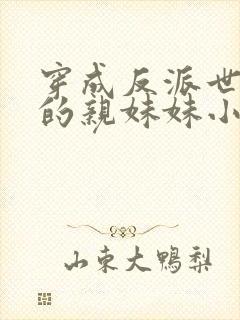 穿成反派世
的親妹妹小
山東大鴨梨